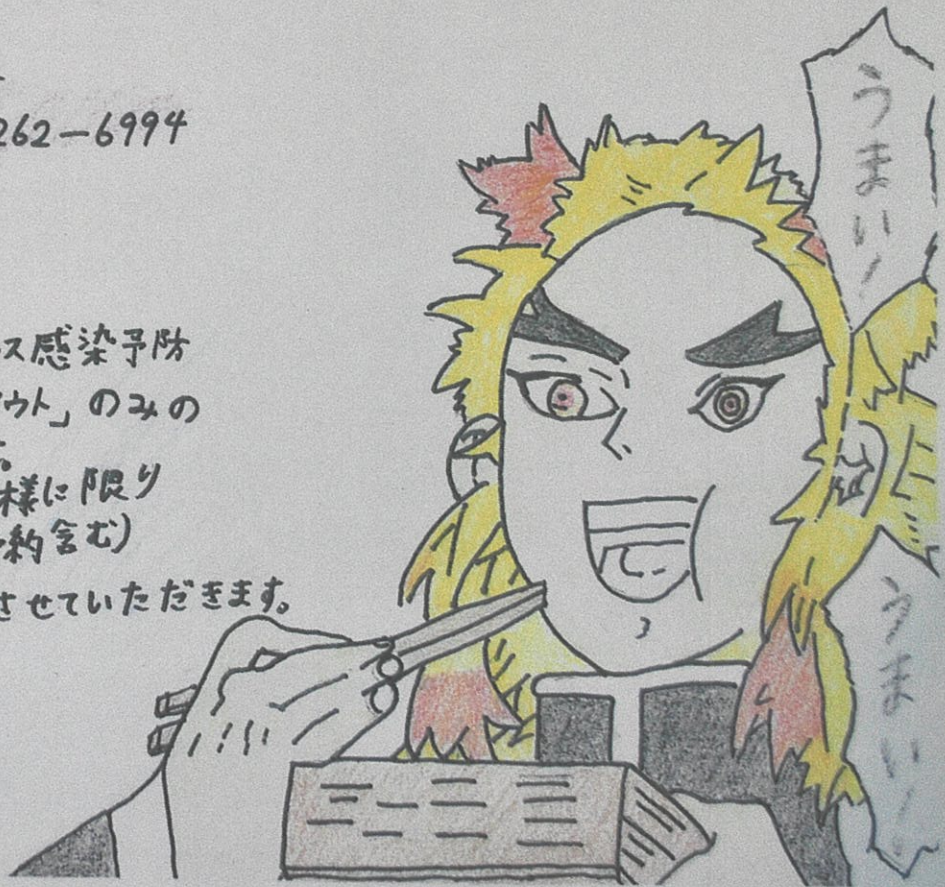 262-6994
ス感染予防
ウト」のみの
様に限り
約含む)
させていただきます。
うまい!
うまい!